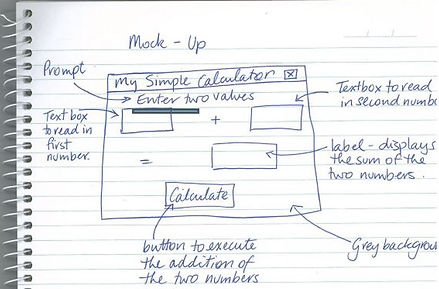 Mock - Up
Prompt
My Simple Calculator
Enter two values
Text box
to read in
first
number.
+
Textbox to read
in second
=
label - displays
the sum of the
two numbers.
Calculate
button to execute
the addition of
the two numbers
Grey